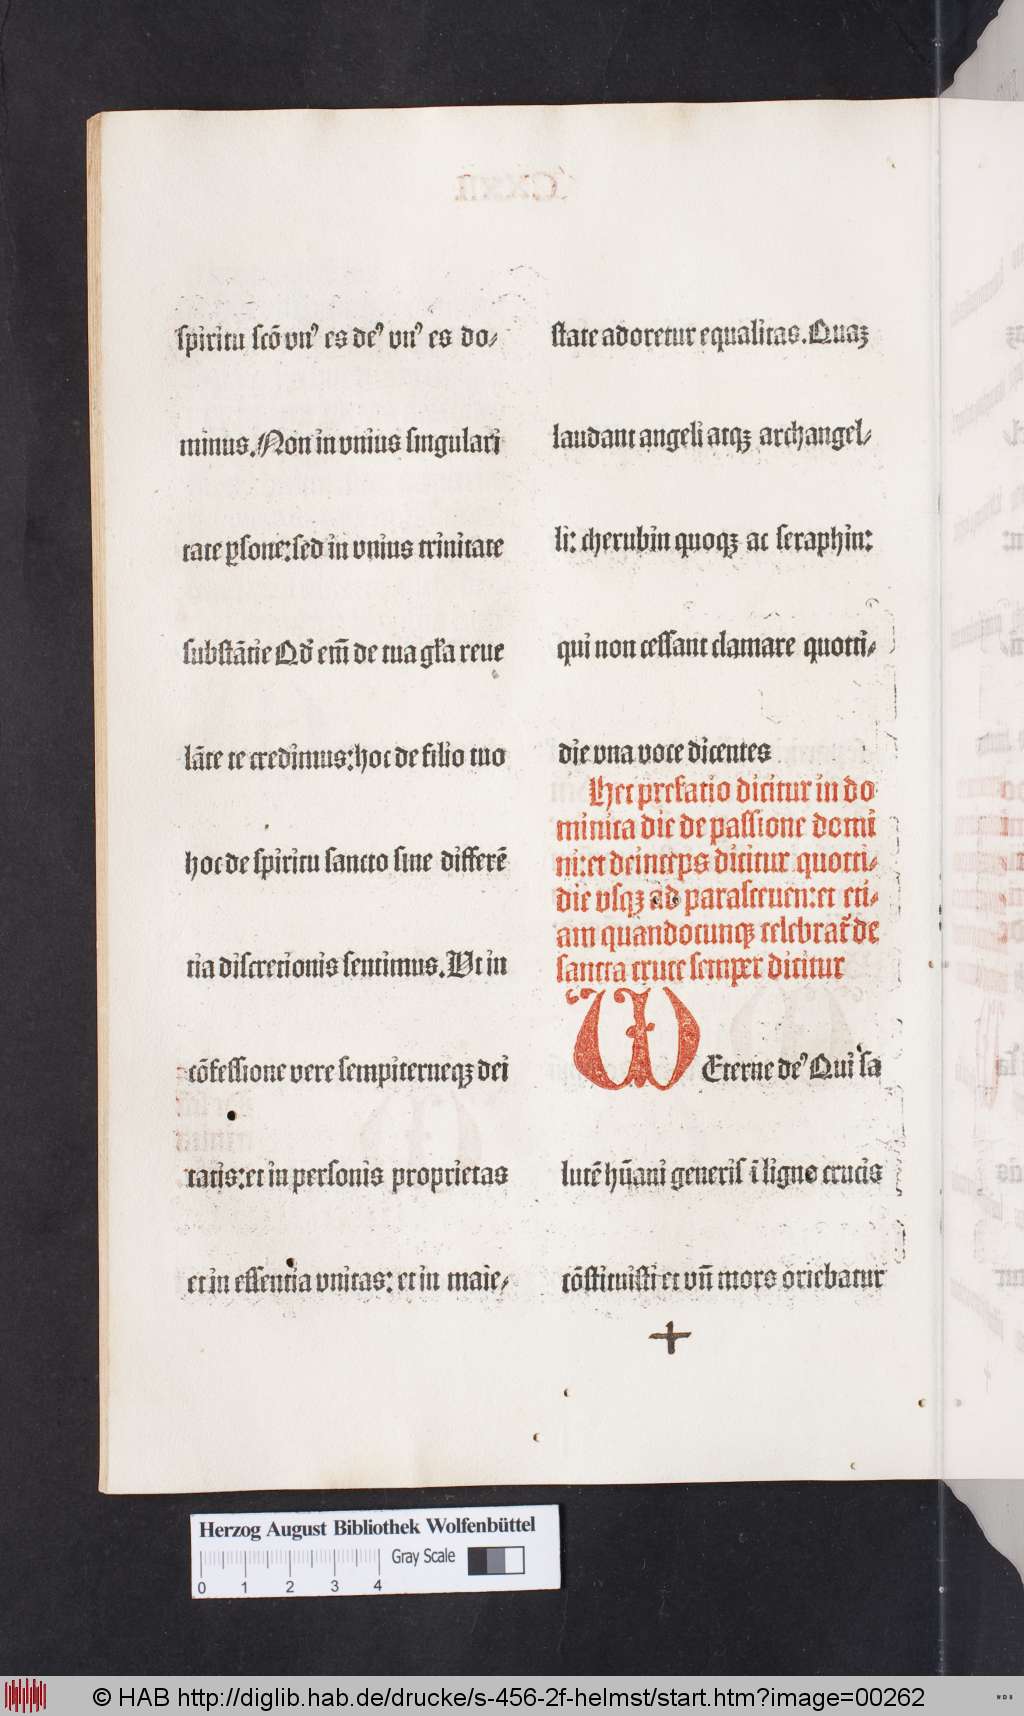 ſpiritu ſcō vnꝰ es deꝰ vnꝰ es do⸗
minus. Non in vnius ſingulari
tate ꝑſone: ſed in vnius trinitate
ſubſtātie Qď em̄ de tua gľa reue
lāte te credimus: hoc de filio tuo
hoc de ſpiritu sancto ſine differē
tia diſcretionis ſentimus. Vt in
cōfeſſione vere ſempiterneqꝫ dei
tatis: et in perſonis proprietas
et in eſſentia vnitas: et in maie⸗
ſtate adoretur equalitas. Quaꝫ
laudant angeli atqꝫ archangel⸗
li: cherubin quoqꝫ ac ſeraphin:
qui non ceſſant clamare quotti⸗
die vna voce dicentes
Hec prefatio dicitur in do
minica die de paſſione domi
ni: et deinceps dicitur quotti⸗
die vſqꝫ ad paraſceuen: et eti⸗
am quandocunqꝫ celebrat̄ de
ſancta cruce ſemper dicitur
W Eterne deꝰ Qui ſa
lutē hūani generiſ ī ligno crucis
cōſtituiſti et vn̄ mors oriebatur
Herzog August Bibliothek Wolfenbüttel
0 1 2 3 4 Gray Scale
© HAB http://diglib.hab.de/drucke/s-456-2f-helmst/start.htm?image=00262